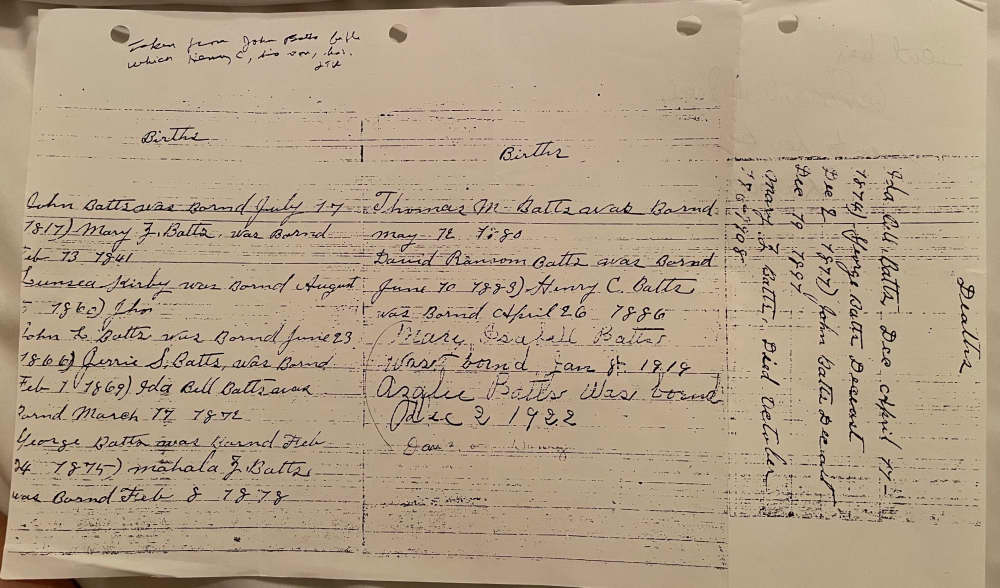 Taken from John Batts bible
which Henry C, his son, has.
Births
John Batts was Bornd July 17
1817) Mary Z. Batts, was Bornd
Feb 13 1841
Kirby was Bornd August
1860) Jhon
John L Batts was Bornd June 23
1866) Jerrie S. Batts, was Bornd
Feb 1 1869) Ida Bell Batts was
Bornd March 17 1872
George Batts was Bornd Feb
24 1875) Mahala Z Batts
was Bornd Feb 8 1878
Births
Thomas M Batts was Bornd
may 12 1880
David Ransom Batts was Bornd
June 10 1883) Henry C. Batts
was Bornd April 26 1886
Mary Isabell Batts
Wast bornd Jan 8 1919
Azalee Batts Was bornd
Dec 2 1922
Deaths
Ida Bell Batts Dec April 17
1876) George Batts Deceast
Dec 2 1877) John Batts Deceast
Dec 19 1897
Mary Z Batts, Died October
1908